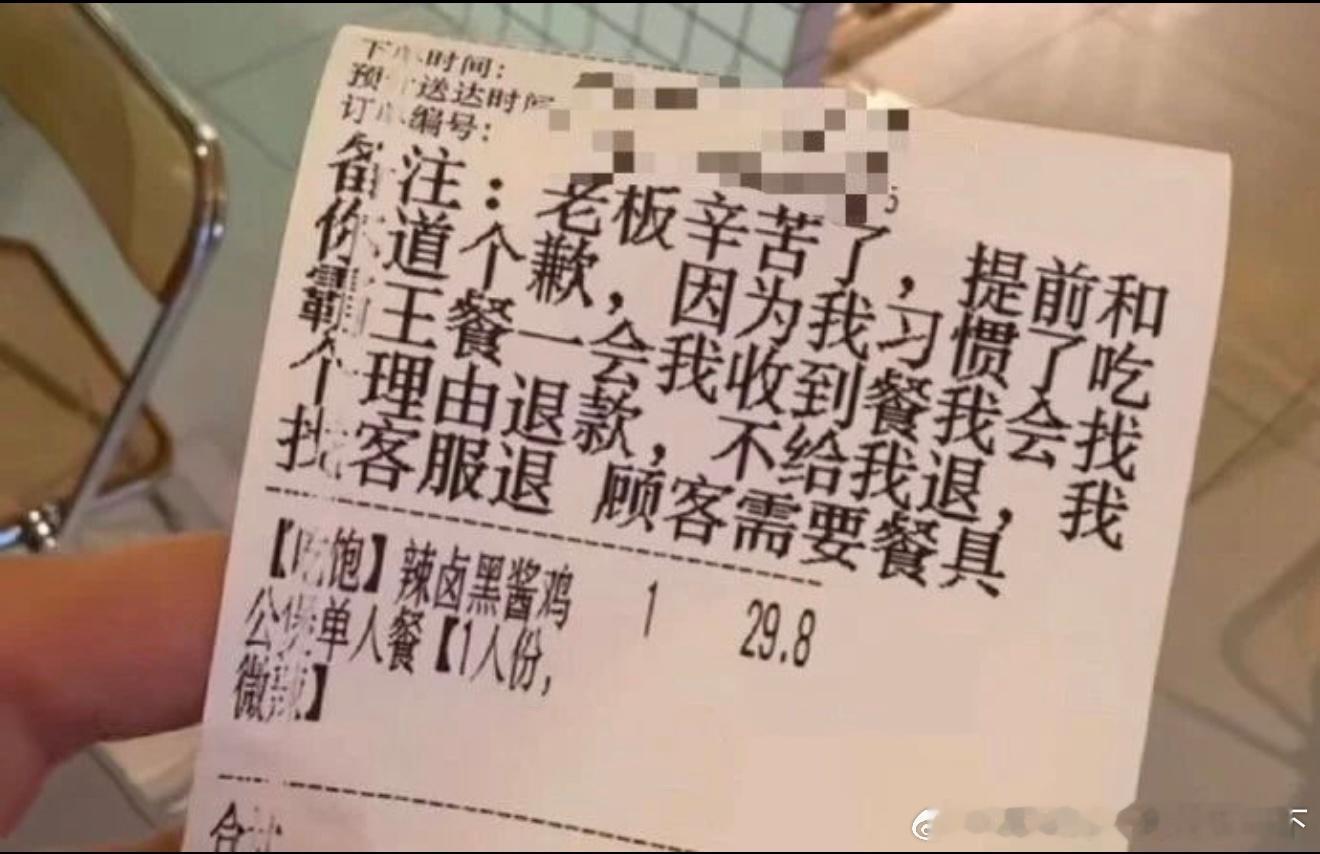 下单时间:
预计送达时间
订单编号:
5
备注：老板辛苦了，提前和
你道个歉，因为我习惯了吃
霸王餐一会我收到餐我会找
个理由退款，不给我退，我
找客服退 顾客需要餐具
【吃饱】辣卤黑酱鸡 1 29.8
公煲单人餐【1人份,
微辣】
合计